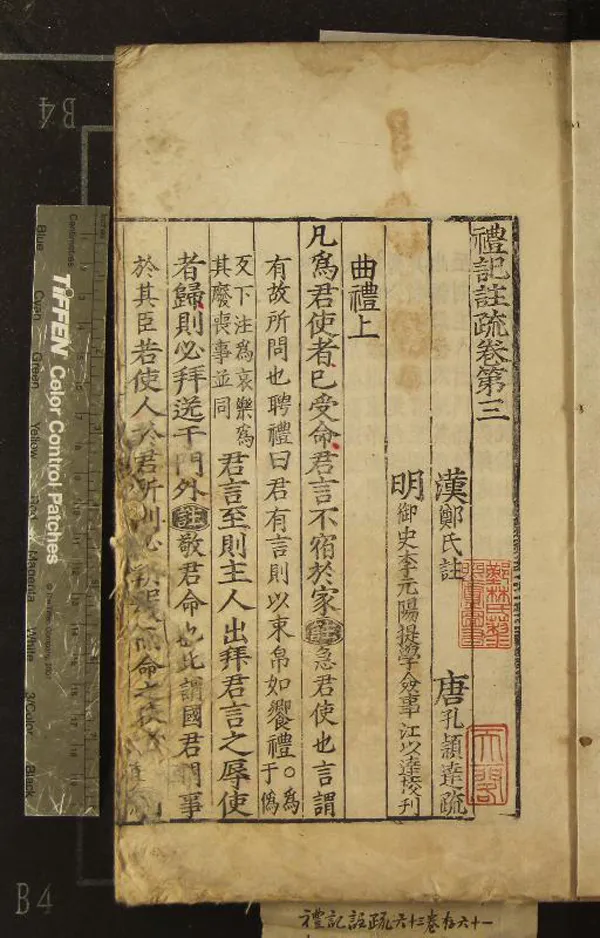 禮記註疏卷第三
漢鄭氏註 唐孔穎達疏
明御史李元陽提學僉事江以達校刊
曲禮上
凡爲君使者已受命君言不宿於家註急君使也言謂
有故所問也聘禮曰君有言則以束帛如饗禮○爲于僞
反下注爲哀樂爲其廢喪事並同君言至則主人出拜君言之辱使
者歸則必拜送于門外註敬君命也此謂國君問事
於其臣若使人於君所則必朝服
命之
禮記註疏六十三卷存六十一
B4
B4
TIFFEN Color Control Patches
Blue
Cyan
Green
Yellow
Red
Magenta
White
3/Color
Black
Centimetres
Inches